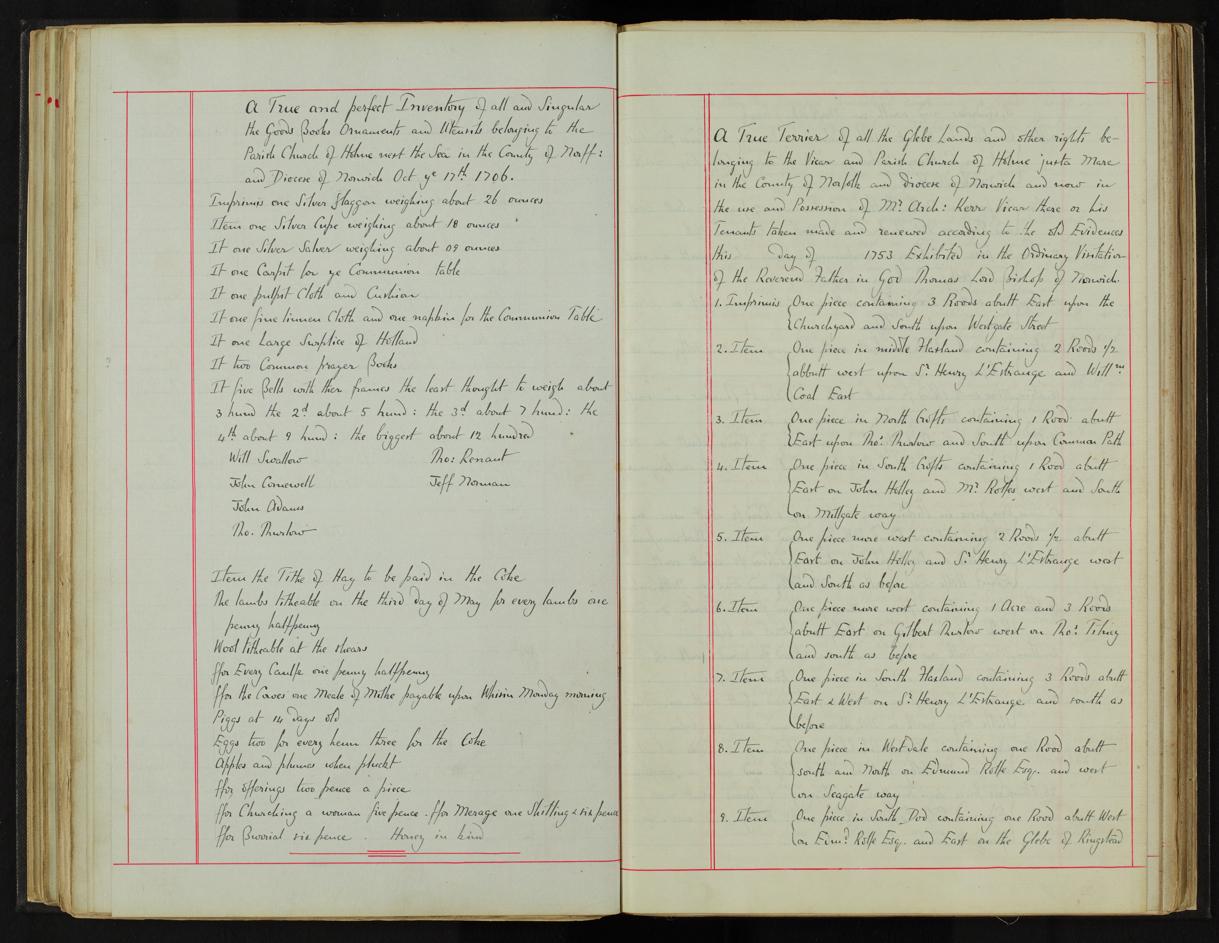 A True and perfect Inventory of all and Singular
the Goods Books Ornaments and Utensils belonging to the
Parish Church of Holme next the Sea in the County of Norff:
and Diocese of Norwich Oct ye 17th 1706.
Imprimis one Silver flaggon weighing about 26 ounces
Item one Silver Cupe weighing about 18 ounces
It one Silver Salver weighing about 09 ounces
It one Carpit for ye Communion table
It one pulpit Cloth and Cushion
It one fine linnen Cloth and one napkin for the Communion Table
It one Large Surplice of Holland
It two Common prayer Books
It five Bells with ther frames the least thought to weigh about
3 hund the 2d about 5 hund: the 3d about 7 hund: the
4th about 9 hund: the biggest about 12 hundred
Will Swallow Tho: Rennant
John Cornewell Jeff Norman
John Adams
Tho. Thurlow
Item the Tithe of Hay to be paid in the Coke
The lambs titheable on the third day of May for every lambs one
penny halfpenny
Wool titheable at the shears
ffor Every Caulfe one penny halfpenny
ffor the Cowes one Meale of Milke payable upon Whison Monday morning
Piggs at 14 days old
Eggs two for every henn three for the Coke
Apples and plumes when pluckt
ffor offerings two pence a piece
ffor Churching a woman five pence. ffor Merage one Shilling & six pence
ffor Buorial six pence. Honey in kind
A True Terrier of all the Glebe Lands and other rights be-
longing to the Vicar and Parish Church of Holme juxta Mare
in the County of Norfolk and diocese of Norwich and now in
the use and Possession of Mr. Arch: Kerr Vicar there or his
Tenants taken made and renewed according to the old Evidences
this day of 1753 Exhibited in the Ordinary Visitation
of the Reverend Father in God Thomas Lord Bishop of Norwich.
1. Imprimis One piece containing 3 Roods abutt East upon the
Churchyard and South upon Westgate Street
2. Item One piece in middle Hasland containing 2 Roods 1/2
abbutt west upon Sr. Henry L'Estrange and Willm
Coal East
3. Item One piece in North Crofts containing 1 Rood abutt
East upon Tho: Thurlow and South upon Common Path
4. Item One piece in South Crofts containing 1 Rood abutt
East on John Helley and Mr. Rolfes west and South
on Millgate way
5. Item One piece more west containing 2 Roods 1/2 abutt
East on John Helley and Sr. Henry L'Estrange west
and South as before
6. Item One piece more west containing 1 Acre and 3 Roods
abutt East on Gilbert Thurlow west on Tho: Tilney
and south as before
7. Item One piece in South Hasland containing 3 Roods abutt
East & West on Sr. Henry L'Estrange and south as
before
8. Item One piece in Westdale containing one Rood abutt
south and North on Edmund Rolfe Esq. and west
on Seagate way
9. Item One piece in South Dod containing one Rood abutt West
on Edmd. Rolfe Esq. and East on the Glebe of Ringstead